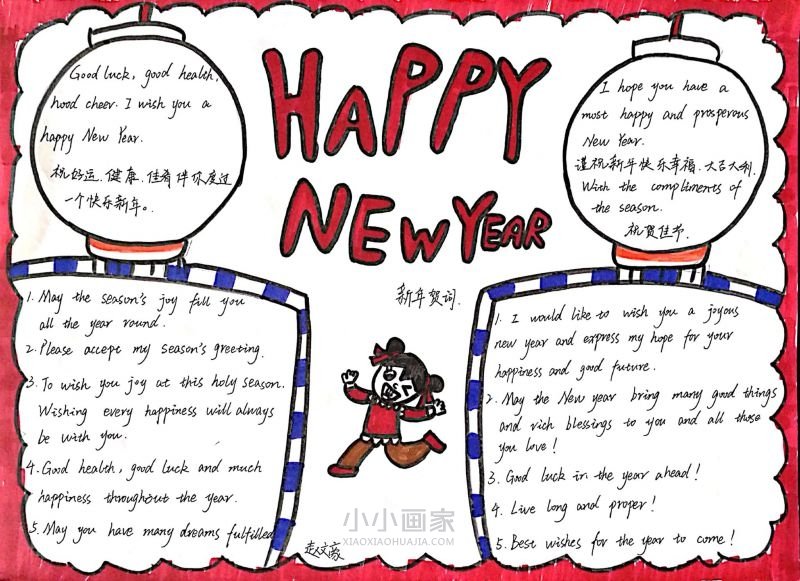 HAPPY
NEW YEAR
新年贺词.
Good luck, good health,
hood cheer. I wish you a
happy New Year.
祝好运、健康、佳肴伴你度过
一个快乐新年。
I hope you have a
most happy and prosperous
New Year.
谨祝新年快乐幸福,大吉大利.
With the compliments of
the season.
祝贺佳节.
1. May the season's joy fill you
all the year round.
2. Please accept my season's greeting.
3. To wish you joy at this holy season.
Wishing every happiness will always
be with you.
4. Good health, good luck and much
happiness throughout the year.
5. May you have many dreams fulfilled
1. I would like to wish you a joyous
new year and express my hope for your
happiness and good future.
2. May the New year bring many good things
and rich blessings to you and all those
you love!
3. Good luck in the year ahead!
4. Live long and proper!
5. Best wishes for the year to come!
小小画家
XIAOXIAOHUAJIA.COM